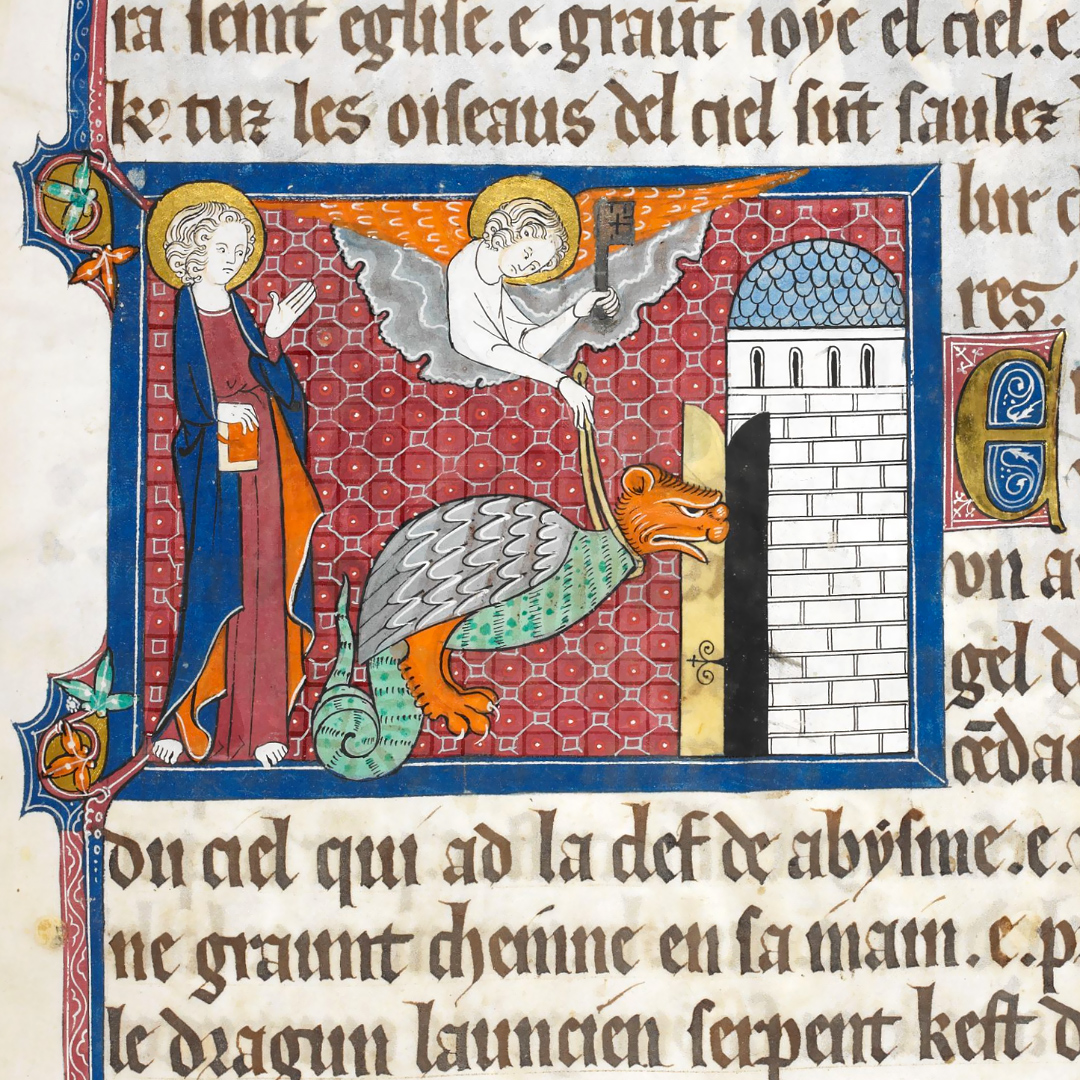 ra seint eglise.e.graūt ioye el ciel.e.
tuz les oiseaus del ciel sūt saulez
lur
res.
E
vn a
gel d
cēdan
du ciel qui ad la clef de abysme.e.
ne graunt cheinne en sa main.e.p
le dragun launcien serpent kest d